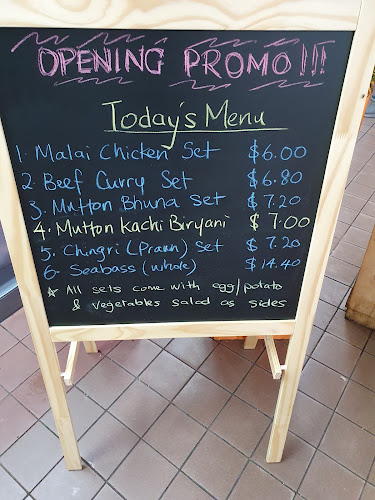 OPENING PROMO!!!
Today's Menu
1. Malai Chicken Set $6.00
2. Beef Curry Set $6.80
3. Mutton Bhuna Set $7.20
4. Mutton Kachi Biryani $7.00
5. Chingri (Prawn) Set $7.20
6. Seabass (whole) $14.40
* All sets come with egg/potato
& vegetables salad as sides